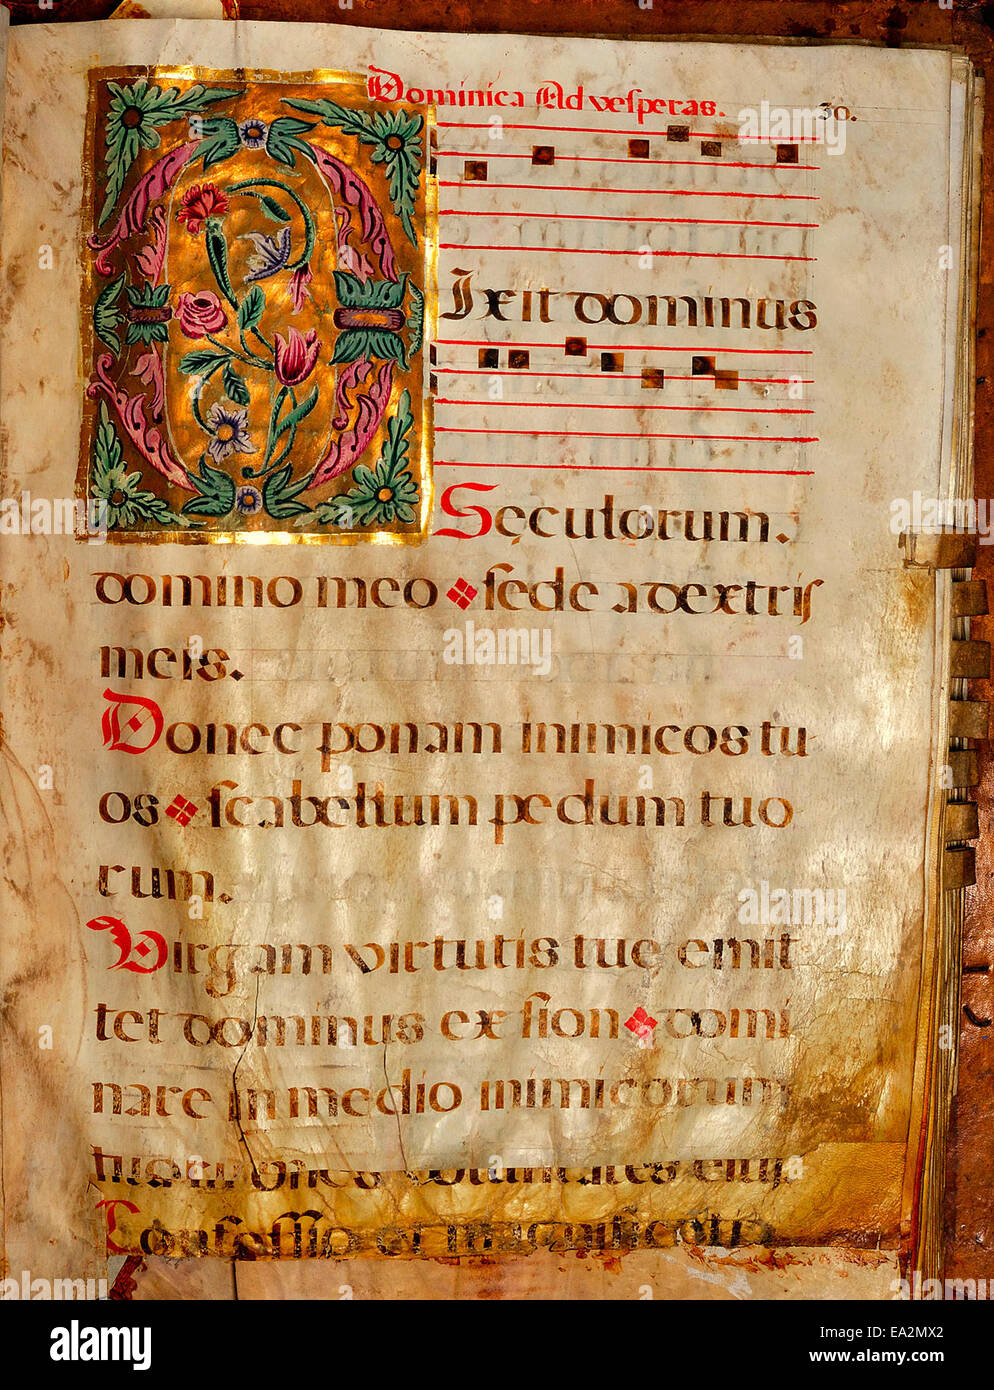 Dominica Ad vesperas.
30.
Dixit dominus
Seculorum.
domino meo sede a dextris
meis.
Donec ponam inimicos tu
os scabellum pedum tuo
rum.
Virgam virtutis tuę emit
tet dominus ex sion domi
nare in medio inimicorum
voluntates eius
Confessio et magnificetio
alamy
Image ID: EA2MX2
www.alamy.com